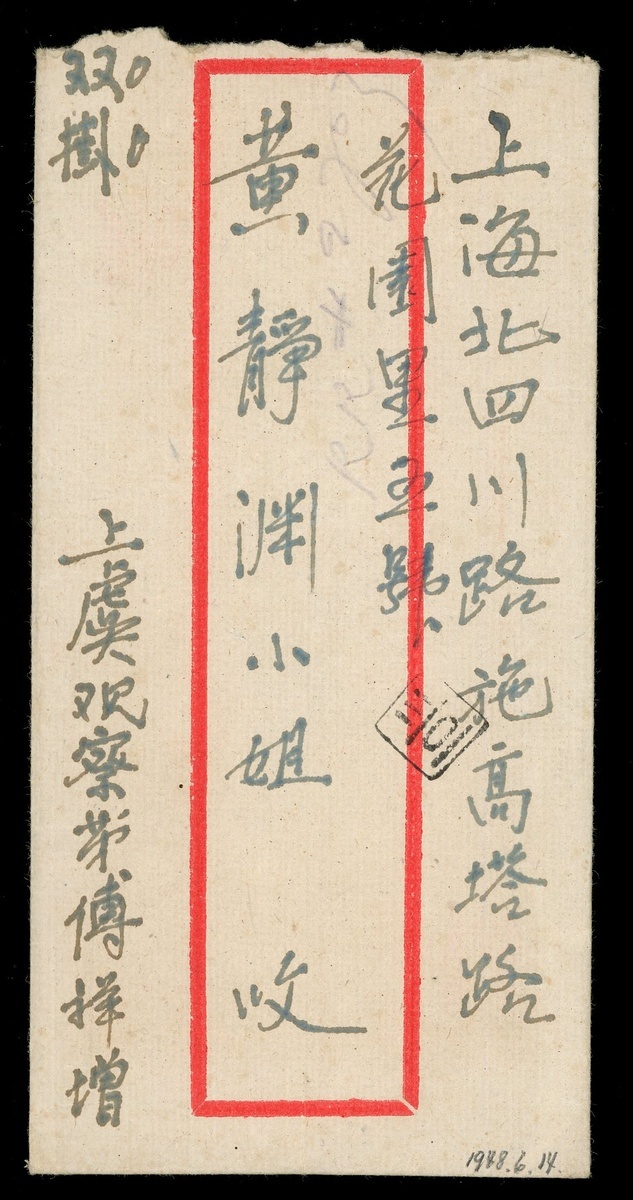 上海北四川路施高塔路
花園里五號
黄靜渊小姐收
双掛
上虞观察第傅祥增
1948.6.14.